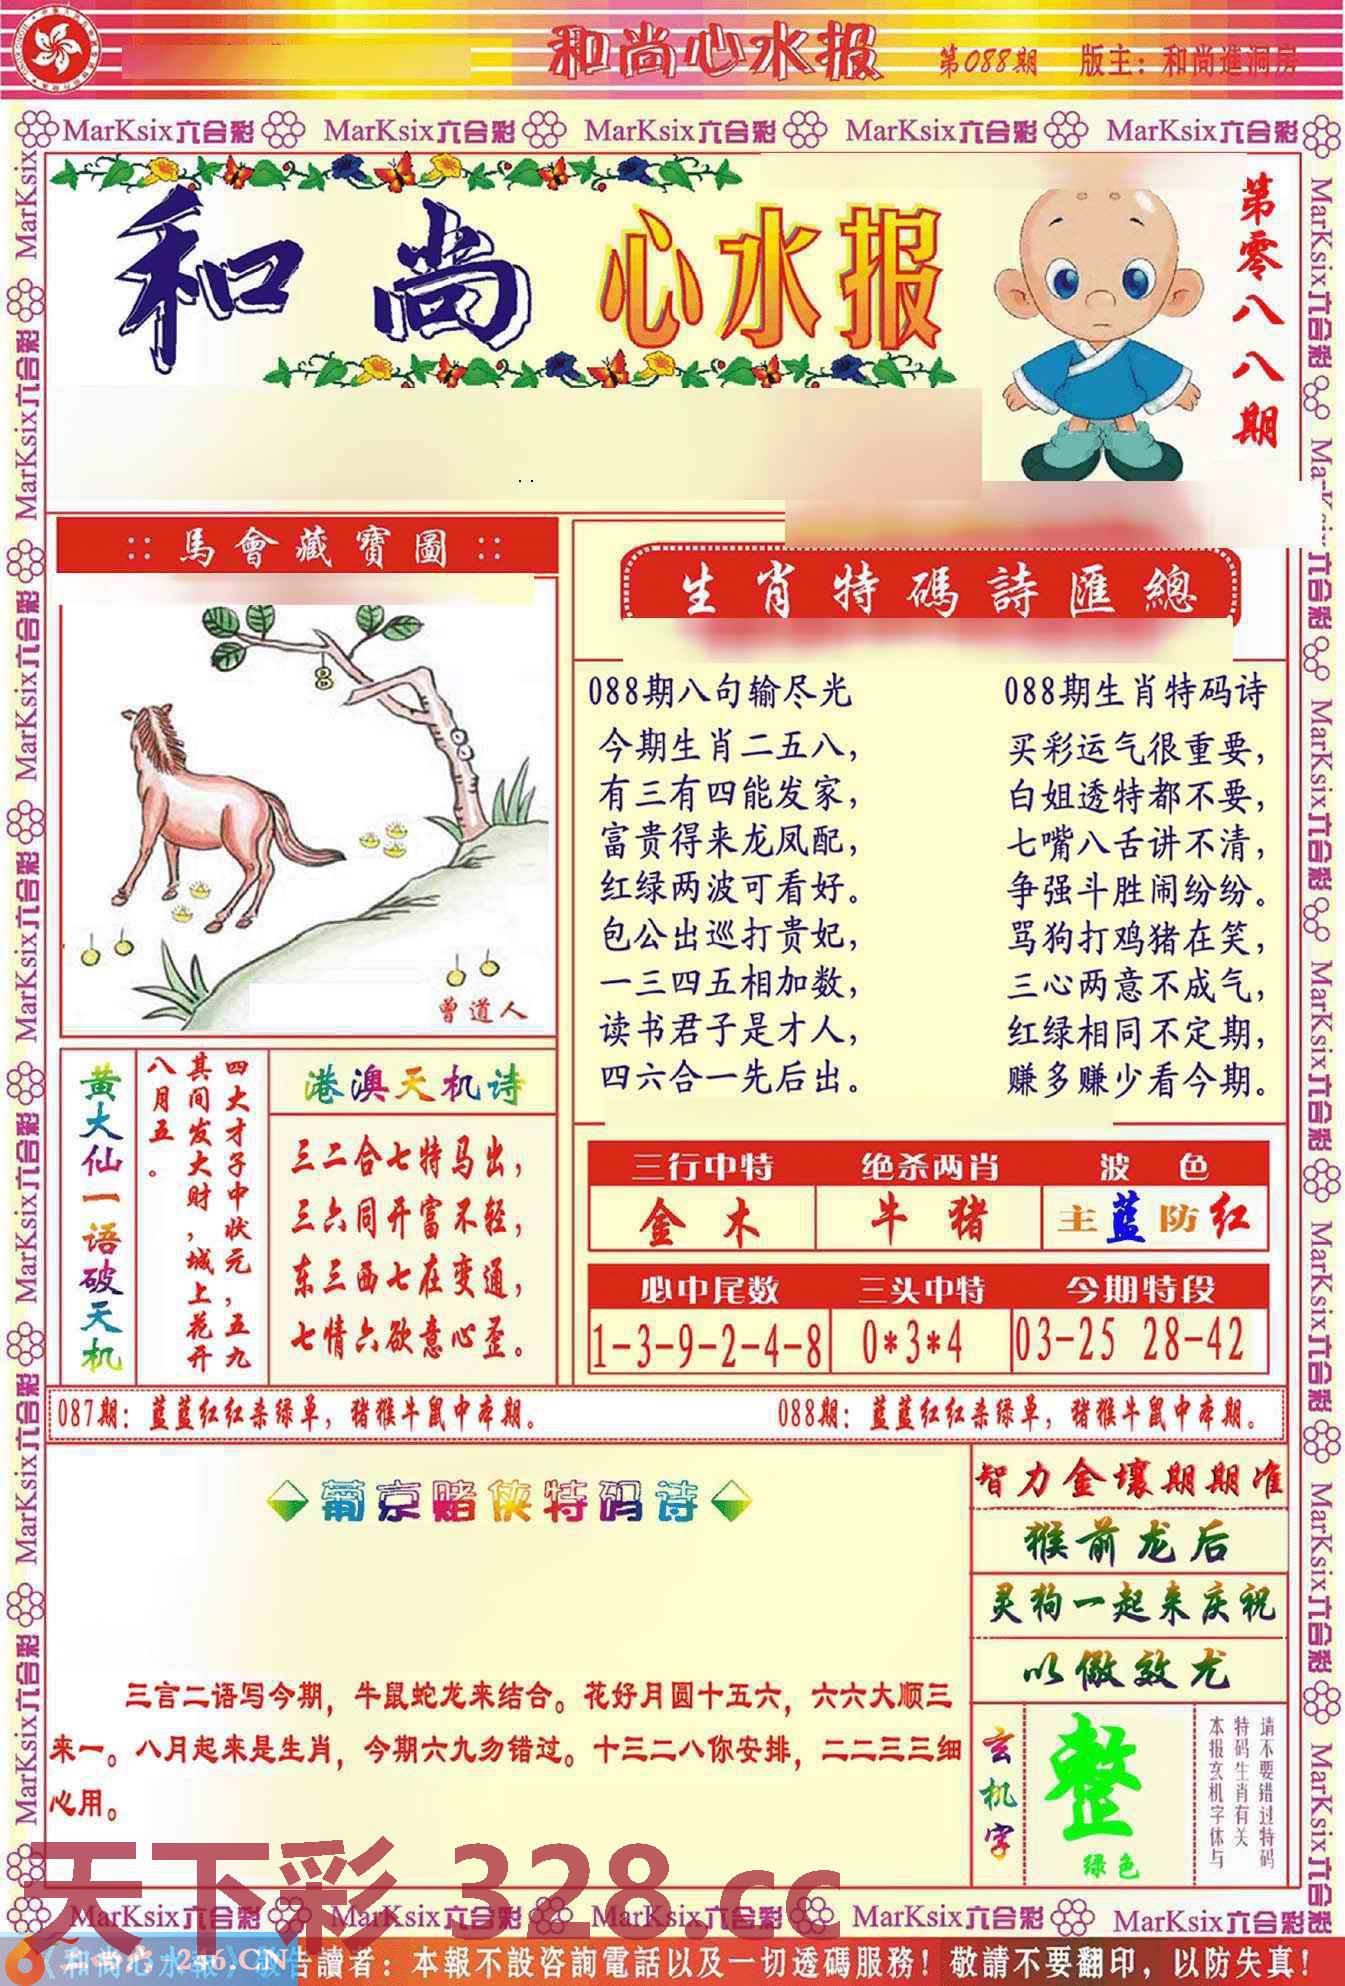 和尚心水报
第088期
版主：和尚進洞房
MarKsix六合彩 MarKsix六合彩 MarKsix六合彩 MarKsix六合彩 MarKsix六合彩
和尚心水报
第零八八期
馬會藏寶圖
8
曾道人
生肖特碼詩匯總
088期八句输尽光
今期生肖二五八，
有三有四能发家，
富贵得来龙凤配，
红绿两波可看好。
包公出巡打贵妃，
一三四五相加数，
读书君子是才人，
四六合一先后出。
088期生肖特码诗
买彩运气很重要，
白姐透特都不要，
七嘴八舌讲不清，
争强斗胜闹纷纷。
骂狗打鸡猪在笑，
三心两意不成气，
红绿相同不定期，
赚多赚少看今期。
黄大仙一语破天机
四大才子中状元，五九
其间发大财，城上花开
八月五。
港澳天机诗
三二合七特马出，
三六同开富不轻，
东三西七在变通，
七情六欲意心歪。
三行中特 绝杀两肖 波色
金木 牛猪 主蓝防红
必中尾数 三头中特 今期特段
1-3-9-2-4-8 0*3*4 03-25 28-42
087期：蓝蓝红红杀绿单，猪猴牛鼠中本期。
088期：蓝蓝红红杀绿单，猪猴牛鼠中本期。
葡京赌侠特码诗
三言二语写今期，牛鼠蛇龙来结合。花好月圆十五六，六六大顺三
来一。八月起来是生肖，今期六九勿错过。十三二八你安排，二二三三细
心用。
智力金壤期期准
猴前龙后
灵狗一起来庆祝
以儆效尤
玄机字
整
绿色
请不要错过特码
特码生肖有关
本报玄机字体与
天下彩 328.cc
MarKsix六合彩 MarKsix六合彩 MarKsix六合彩 MarKsix六合彩 MarKsix六合彩
246.CN
告讀者：本報不設咨詢電話以及一切透碼服務！敬請不要翻印，以防失真！